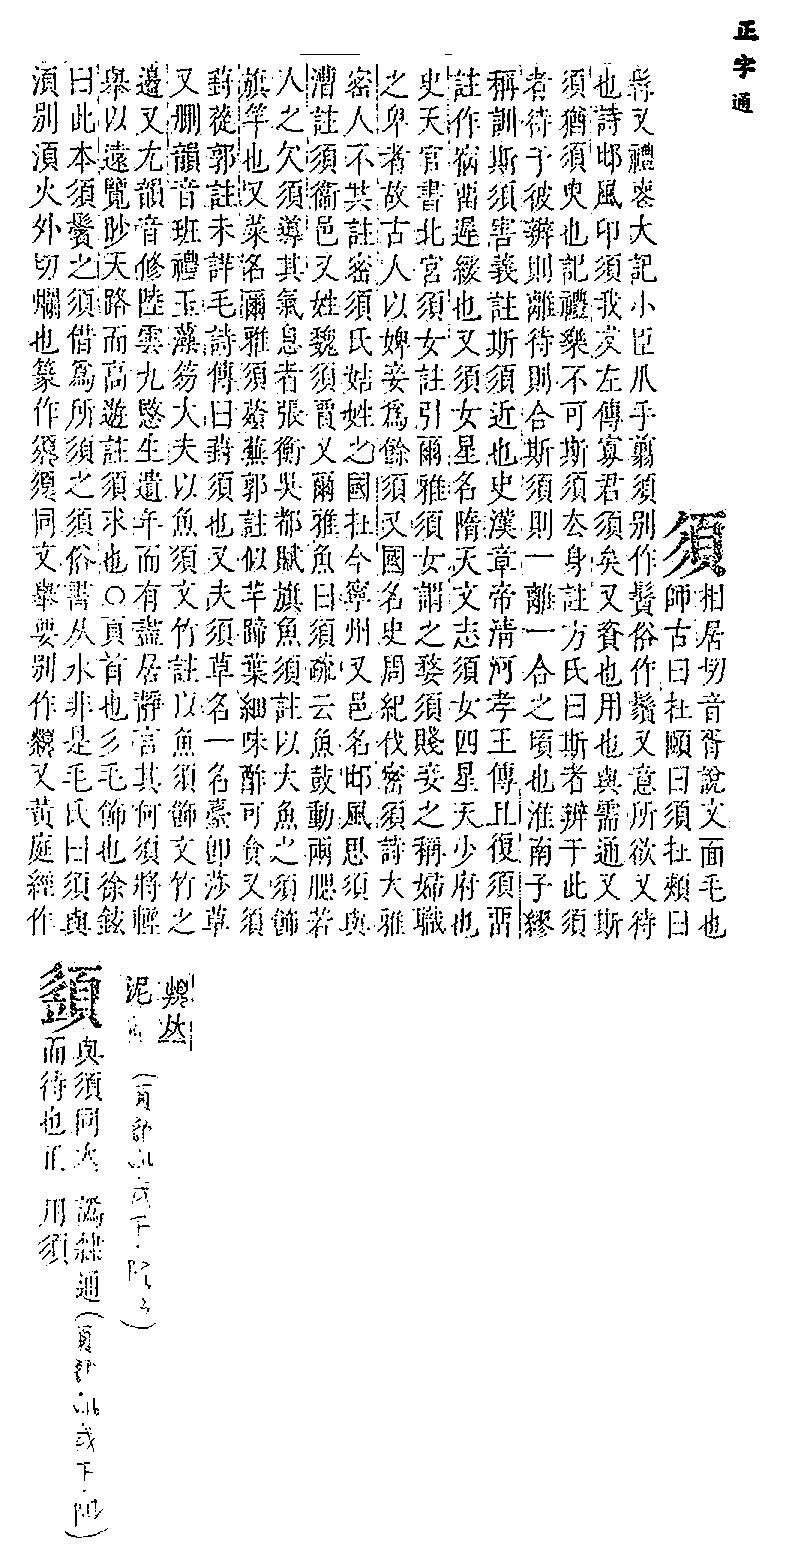 正字通
須
相居切音胥說文面毛也
師古曰在頤曰須在頰曰
髯又禮喪大記小臣爪手翦須別作鬚俗作鬢又意所欲又待
也詩邶風印須我友左傳寡君須矣又資也用也與需通又斯
須猶須臾也記禮樂不可斯須去身註方氏曰斯者辨于此須
者待于彼辨則離待則合斯須則一離一合之頃也淮南子繆
稱訓斯須害義註斯須近也史漢章帝淸河孝王傳且復須畱
註作宿畱遲緩也又須女星名隋天文志須女四星天少府也
史天官書北宮須女註引爾雅須女謂之婺須賤妾之稱婦職
之卑者故古人以婢妾爲餘須又國名史周紀伐密須詩大雅
密人不共註密須氏姞姓之國在今寧州又邑名邶風思須與
漕註須衞邑又姓魏須賈又爾雅魚曰須疏云魚鼓動兩腮若
人之欠須導其氣息者張衡吳都賦旗魚須註以大魚之須飾
旗竿也又菜名爾雅須蕵蕪郭註似羊蹄葉細味酢可食又須
葑葰郭註未詳毛詩傳曰葑須也又夫須草名一名臺卽莎草
又刪韻音班禮玉藻笏大夫以魚須文竹註以魚須飾文竹之
邉又尤韻音修陸雲九愍生遺年而有盡居靜言其何須將輕
舉以遠覽眇天路而高遊註須求也○頁首也彡毛飾也徐鉉
曰此本須鬢之須借爲所須之須俗書从水非是毛氏曰須與
湏別湏火外切爛也篆作須同文舉要別作又黃庭經作
並
泥
(頁部
下
顉
與須同大 譌隸通(頁部 或下
而待也 用須